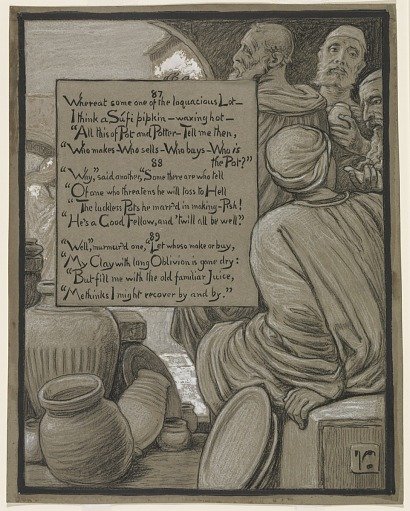 87
Whereat some one of the loquacious Lot—
I think a Súfi pipkin—waxing hot—
"All this of Pot and Potter—Tell me then,
"Who makes—Who sells—Who buys—Who is
the Pot?"
88
"Why," said another, "Some there are who tell
"Of one who threatens he will toss to Hell
"The luckless Pots he marr'd in making—Pish!
"He's a Good Fellow, and 'twill all be well."
89
"Well," murmur'd one, "Let whoso make or buy,
"My Clay with long Oblivion is gone dry:
"But fill me with the old familiar Juice,
"Methinks I might recover by and by."